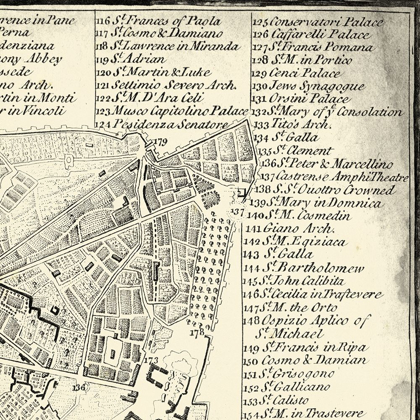 rence in Pane
Perna
denziana
ony Abbey
assede
no Arch.
rtin in Monti
er in Vincoli
116 St. Frances of Paola
117 St. Cosmo & Damiano
118 St. Lawrence in Miranda
119 St. Adrian
120 St. Martin & Luke
121 Settinio Severo Arch.
122 St. M. D'Ara Celi
123 Museo Capitolino Palace
124 Residenza Senatore
125 Conservatori Palace
126 Caffarelli Palace
127 St. Francis Pomana
128 St. M. in Portico
129 Cenci Palace
130 Jews Synagogue
131 Orsini Palace
132 St. Mary of ye Consolation
133 Tito's Arch.
134 St. Galla
135 St. Clement
136 St. Peter & Marcellino
137 Castrense AmphiTheatre
138 S.S. Quottro Crowned
139 St. Mary in Domnica
140 St. M. Cosmedin
141 Giano Arch.
142 St. M. Egiziaca
143 St. Galla
144 St. Bartholomew
145 St. John Calibita
146 St. Cecilia in Trastevere
147 St. M. the Orto
148 Ospizio Aplico of
St. Michael
149 St. Francis in Ripa
150 Cosmo & Damian
151 St. Grisogono
152 St. Gallicano
153 St. Calisto
154 St. M. in Trastevere
179
137
178
173
136